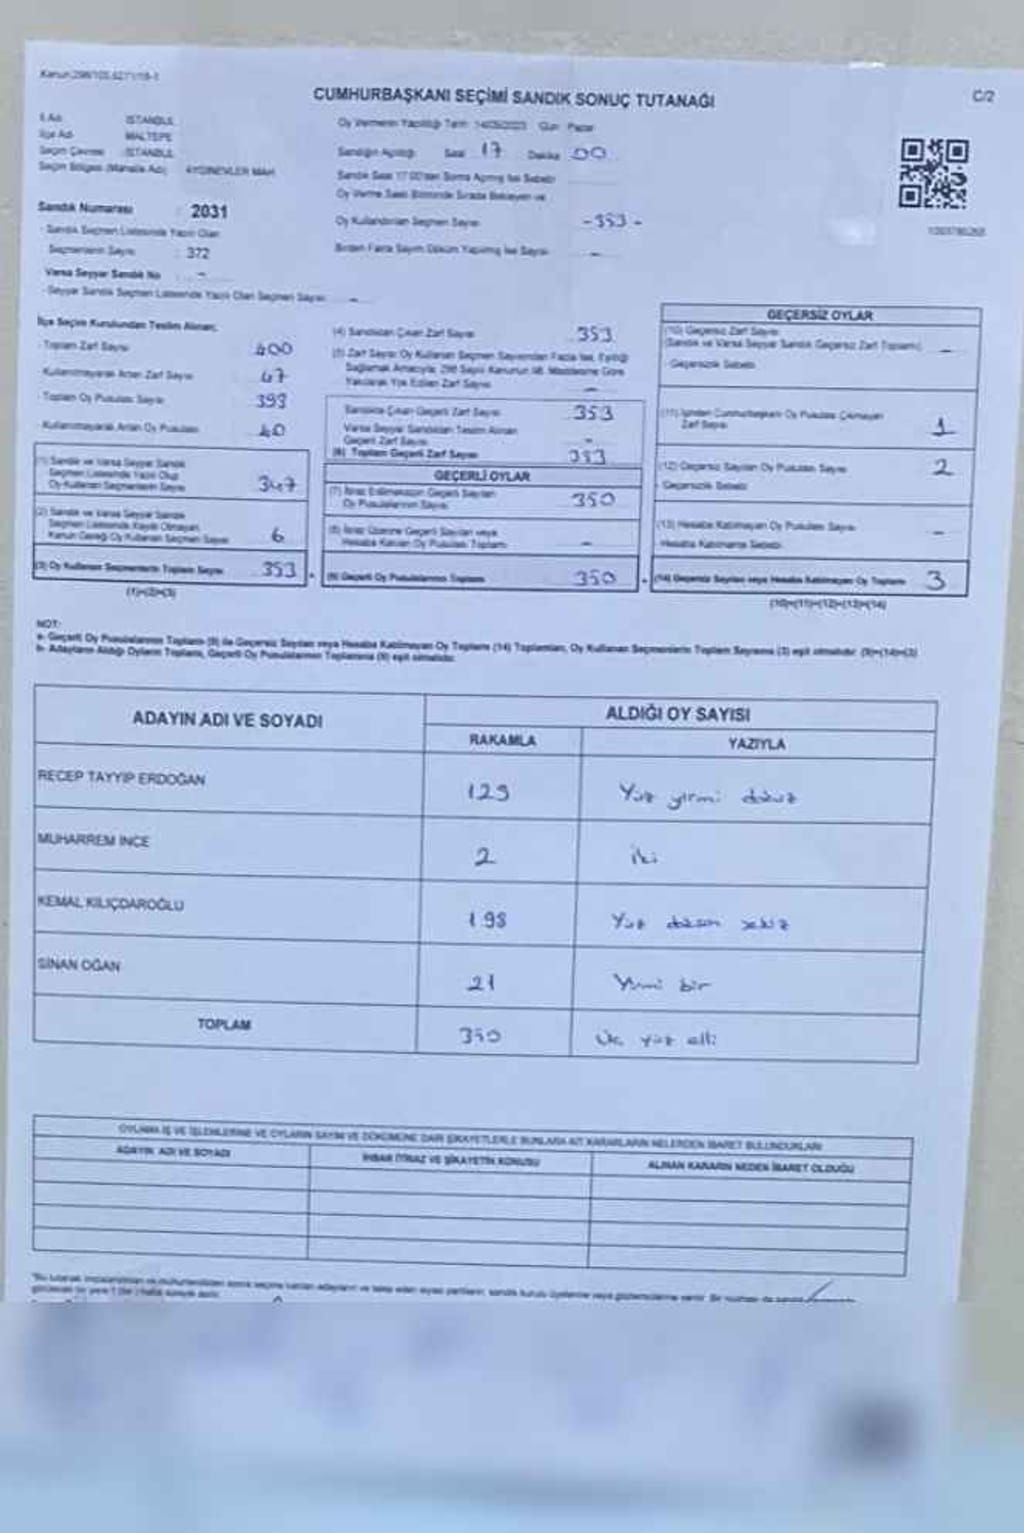 Kanun:298/105,6271/18-1
CUMHURBAŞKANI SEÇİMİ SANDIK SONUÇ TUTANAĞI
C/2
İl Adı İSTANBUL
İlçe Adı MALTEPE
Seçim Çevresi İSTANBUL
Seçim Bölgesi (Mahalle Adı) AYDINEVLER MAH.
Sandık Numarası : 2031
- Sandık Seçmen Listesinde Yazılı Olan
Seçmenlerin Sayısı : 372
Varsa Seyyar Sandık No : -
- Seyyar Sandık Seçmen Listesinde Yazılı Olan Seçmen Sayısı: -
Oy Vermenin Yapıldığı Tarih: 14/05/2023 Gün: Pazar
Sandığın Açıldığı Saat 17 Dakika 00
Sandık Saat 17:00'den Sonra Açılmış İse Sebebi:
Oy Verme Saati Bitiminde Sırada Bekleyen ve
Oy Kullandırılan Seçmen Sayısı -353-
Birden Fazla Sayım Döküm Yapılmış İse Sayısı -
İlçe Seçim Kurulundan Teslim Alınan;
- Toplam Zarf Sayısı 400
- Kullanılmayarak Artan Zarf Sayısı 47
- Toplam Oy Pusulası Sayısı 393
- Kullanılmayarak Artan Oy Pusulası 40
(1) Sandık ve Varsa Seyyar Sandık
Seçmen Listesinde Yazılı Olup
Oy Kullanan Seçmenlerin Sayısı 347
(2) Sandık ve Varsa Seyyar Sandık
Seçmen Listesinde Kayıtlı Olmayan
Kanun Gereği Oy Kullanan Seçmen Sayısı 6
(3) Oy Kullanan Seçmenlerin Toplam Sayısı 353
(1)+(2)=(3)
(4) Sandıktan Çıkan Zarf Sayısı 353
(5) Zarf Sayısı Oy Kullanan Seçmen Sayısından Fazla İse, Eşitliği
Sağlamak Amacıyla, 298 Sayılı Kanunun 98. Maddesine Göre
Yakılarak Yok Edilen Zarf Sayısı -
Sandıkta Çıkan Geçerli Zarf Sayısı 353
Varsa Seyyar Sandıktan Teslim Alınan
Geçerli Zarf Sayısı -
(6) Toplam Geçerli Zarf Sayısı 353
GEÇERLİ OYLAR
(7) İtiraz Edilmeksizin Geçerli Sayılan
Oy Pusulalarının Sayısı 350
(8) İtiraz Üzerine Geçerli Sayılan veya
Hesaba Katılan Oy Pusulaları Toplamı -
(9) Geçerli Oy Pusulalarının Toplamı 350
GEÇERSİZ OYLAR
(10) Geçersiz Zarf Sayısı
(Sandık ve Varsa Seyyar Sandık Geçersiz Zarf Toplamı) -
- Geçersizlik Sebebi:
(11) İçinden Cumhurbaşkanı Oy Pusulası Çıkmayan
Zarf Sayısı 1
(12) Geçersiz Sayılan Oy Pusulası Sayısı 2
- Geçersizlik Sebebi:
(13) Hesaba Katılmayan Oy Pusulası Sayısı -
Hesaba Katılmama Sebebi:
(14) Geçersiz Sayılan veya Hesaba Katılmayan Oy Toplamı 3
(10)+(11)+(12)+(13)=(14)
NOT:
a- Geçerli Oy Pusulalarının Toplamı (9) ile Geçersiz Sayılan veya Hesaba Katılmayan Oy Toplamı (14) Toplamları, Oy Kullanan Seçmenlerin Toplam Sayısına (3) eşit olmalıdır. (9)+(14)=(3)
b- Adayların Aldığı Oyların Toplamı, Geçerli Oy Pusulalarının Toplamına (9) eşit olmalıdır.
ADAYIN ADI VE SOYADI ALDIĞI OY SAYISI
RAKAMLA YAZIYLA
RECEP TAYYİP ERDOĞAN 129 Yüz yirmi dokuz
MUHARREM İNCE 2 iki
KEMAL KILIÇDAROĞLU 198 Yüz doksan sekiz
SİNAN OĞAN 21 Yirmi bir
TOPLAM 350 Üç yüz elli
OYLAMA İŞ VE İŞLEMLERİNE VE OYLARIN SAYIM VE DÖKÜMÜNE DAİR ŞİKAYETLERLE BUNLARA AİT KARARLARIN NELERDEN İBARET BULUNDUKLARI
ADAYIN ADI VE SOYADI İHBAR İTİRAZ VE ŞİKAYETİN KONUSU ALINAN KARARIN NEDEN İBARET OLDUĞU